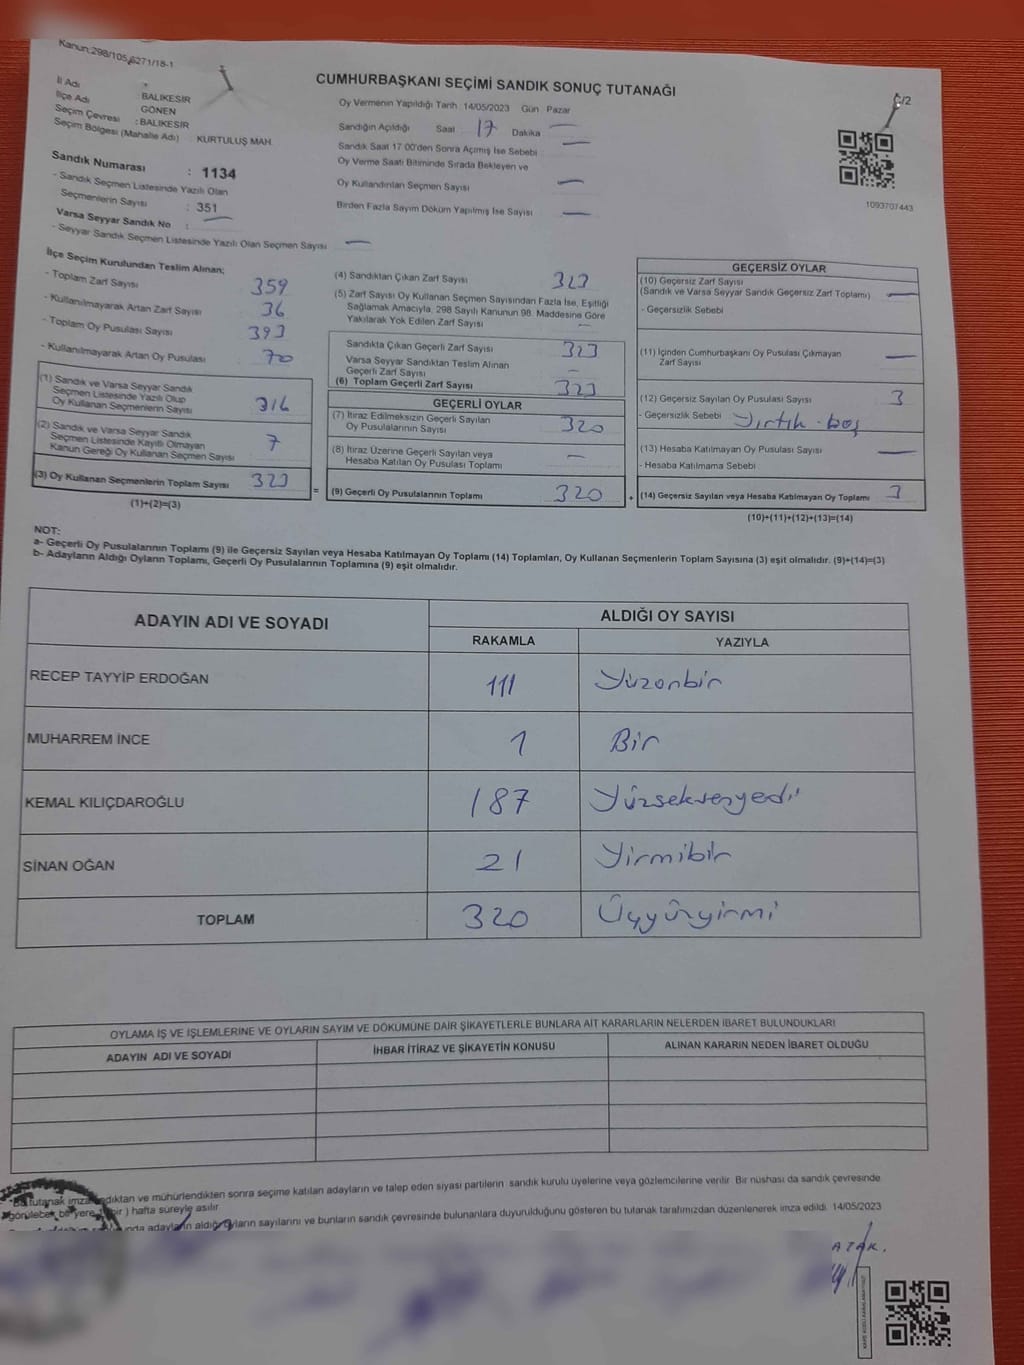 Kanun:298/105,6271/18-1
CUMHURBAŞKANI SEÇİMİ SANDIK SONUÇ TUTANAĞI
/2
İl Adı : BALIKESİR
İlçe Adı : GÖNEN
Seçim Çevresi : BALIKESİR
Seçim Bölgesi (Mahalle Adı) : KURTULUŞ MAH.
Sandık Numarası : 1134
- Sandık Seçmen Listesinde Yazılı Olan
Seçmenlerin Sayısı : 351
Varsa Seyyar Sandık No : —
- Seyyar Sandık Seçmen Listesinde Yazılı Olan Seçmen Sayısı —
Oy Vermenin Yapıldığı Tarih 14/05/2023 Gün Pazar
Sandığın Açıldığı Saat 17 Dakika —
Sandık Saat 17:00'den Sonra Açılmış İse Sebebi —
Oy Verme Saati Bitiminde Sırada Bekleyen ve
Oy Kullandırılan Seçmen Sayısı —
Birden Fazla Sayım Döküm Yapılmış İse Sayısı —
1093707443
İlçe Seçim Kurulundan Teslim Alınan;
- Toplam Zarf Sayısı 359
- Kullanılmayarak Artan Zarf Sayısı 36
- Toplam Oy Pusulası Sayısı 393
- Kullanılmayarak Artan Oy Pusulası 70
(1) Sandık ve Varsa Seyyar Sandık
Seçmen Listesinde Yazılı Olup
Oy Kullanan Seçmenlerin Sayısı 316
(2) Sandık ve Varsa Seyyar Sandık
Seçmen Listesinde Kayıtlı Olmayan
Kanun Gereği Oy Kullanan Seçmen Sayısı 7
(3) Oy Kullanan Seçmenlerin Toplam Sayısı 323
(1)+(2)=(3)
=
(4) Sandıktan Çıkan Zarf Sayısı 323
(5) Zarf Sayısı Oy Kullanan Seçmen Sayısından Fazla İse, Eşitliği
Sağlamak Amacıyla, 298 Sayılı Kanunun 98. Maddesine Göre
Yakılarak Yok Edilen Zarf Sayısı —
Sandıkta Çıkan Geçerli Zarf Sayısı 323
Varsa Seyyar Sandıktan Teslim Alınan
Geçerli Zarf Sayısı —
(6) Toplam Geçerli Zarf Sayısı 323
GEÇERLİ OYLAR
(7) İtiraz Edilmeksizin Geçerli Sayılan
Oy Pusulalarının Sayısı 320
(8) İtiraz Üzerine Geçerli Sayılan veya
Hesaba Katılan Oy Pusulası Toplamı —
(9) Geçerli Oy Pusulalarının Toplamı 320
+
GEÇERSİZ OYLAR
(10) Geçersiz Zarf Sayısı
(Sandık ve Varsa Seyyar Sandık Geçersiz Zarf Toplamı) —
- Geçersizlik Sebebi
(11) İçinden Cumhurbaşkanı Oy Pusulası Çıkmayan
Zarf Sayısı —
(12) Geçersiz Sayılan Oy Pusulası Sayısı 3
- Geçersizlik Sebebi Yırtık - boş
(13) Hesaba Katılmayan Oy Pusulası Sayısı —
- Hesaba Katılmama Sebebi
(14) Geçersiz Sayılan veya Hesaba Katılmayan Oy Toplamı 3
(10)+(11)+(12)+(13)=(14)
NOT:
a- Geçerli Oy Pusulalarının Toplamı (9) ile Geçersiz Sayılan veya Hesaba Katılmayan Oy Toplamı (14) Toplamları, Oy Kullanan Seçmenlerin Toplam Sayısına (3) eşit olmalıdır. (9)+(14)=(3)
b- Adayların Aldığı Oyların Toplamı, Geçerli Oy Pusulalarının Toplamına (9) eşit olmalıdır.
ADAYIN ADI VE SOYADI
ALDIĞI OY SAYISI
RAKAMLA YAZIYLA
RECEP TAYYİP ERDOĞAN 111 Yüzonbir
MUHARREM İNCE 1 Bir
KEMAL KILIÇDAROĞLU 187 Yüzseksenyedi
SİNAN OĞAN 21 Yirmibir
TOPLAM 320 Üçyüzyirmi
OYLAMA İŞ VE İŞLEMLERİNE VE OYLARIN SAYIM VE DÖKÜMÜNE DAİR ŞİKAYETLERLE BUNLARA AİT KARARLARIN NELERDEN İBARET BULUNDUKLARI
ADAYIN ADI VE SOYADI İHBAR İTİRAZ VE ŞİKAYETİN KONUSU ALINAN KARARIN NEDEN İBARET OLDUĞU
Bu tutanak imzalandıktan ve mühürlendikten sonra seçime katılan adayların ve talep eden siyasi partilerin sandık kurulu üyelerine veya gözlemcilerine verilir. Bir nüshası da sandık çevresinde
görülebilecek bir yere (bir) hafta süreyle asılır.
adayların aldığı oyların sayılarını ve bunların sandık çevresinde bulunanlara duyurulduğunu gösteren bu tutanak tarafımızdan düzenlenerek imza edildi. 14/05/2023
ATAK.